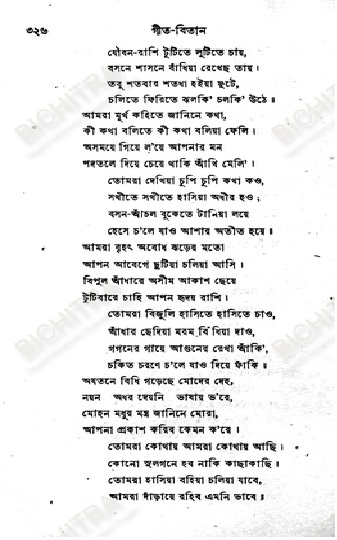 ৩২৬ গীত-বিতান
যৌবন-রাশি টুটিতে লুটিতে চায়,
বসনে শাসনে বাঁধিয়া রেখেছ তায়।
তবু শতবার শতধা হইয়া ফুটে,
চলিতে ফিরিতে ঝলকি' চলকি' উঠে॥
আমরা মূর্খ কহিতে জানিনে কথা,
কী কথা বলিতে কী কথা বলিয়া ফেলি।
অসময়ে গিয়ে ল'য়ে আপনার মন
পদতলে দিয়ে চেয়ে থাকি আঁখি মেলি'।
তোমরা দেখিয়া চুপি চুপি কথা কও,
সখীতে সখীতে হাসিয়া অধীর হও;
বসন-আঁচল বুকেতে টানিয়া লয়ে
হেসে চ'লে যাও আশার অতীত হয়ে॥
আমরা বৃহৎ অবোধ ঝড়ের মতো
আপন আবেগে ছুটিয়া চলিয়া আসি।
বিপুল আঁধারে অসীম আকাশ ছেয়ে
টুটিবারে চাহি আপন হৃদয় রাশি।
তোমরা বিজুলি হাসিতে হাসিতে চাও,
আঁধার ছেদিয়া মরম বিঁধিয়া দাও,
গগনের গায়ে আগুনের রেখা আঁকি',
চকিত চরণে চ'লে যাও দিয়ে ফাঁকি॥
অযতনে বিধি গড়েছে মোদের দেহ,
নয়ন অধর দেয়নি ভাষায় ভ'রে,
মোহন মধুর মন্ত্র জানিনে মোরা,
আপনা প্রকাশ করিব কেমন ক'রে।
তোমরা কোথায় আমরা কোথায় আছি।
কোনো সুলগনে হব নাকি কাছাকাছি।
তোমরা হাসিয়া বহিয়া চলিয়া যাবে,
আমরা দাঁড়ায়ে রহিব এমনি ভাবে॥
BICHITRA